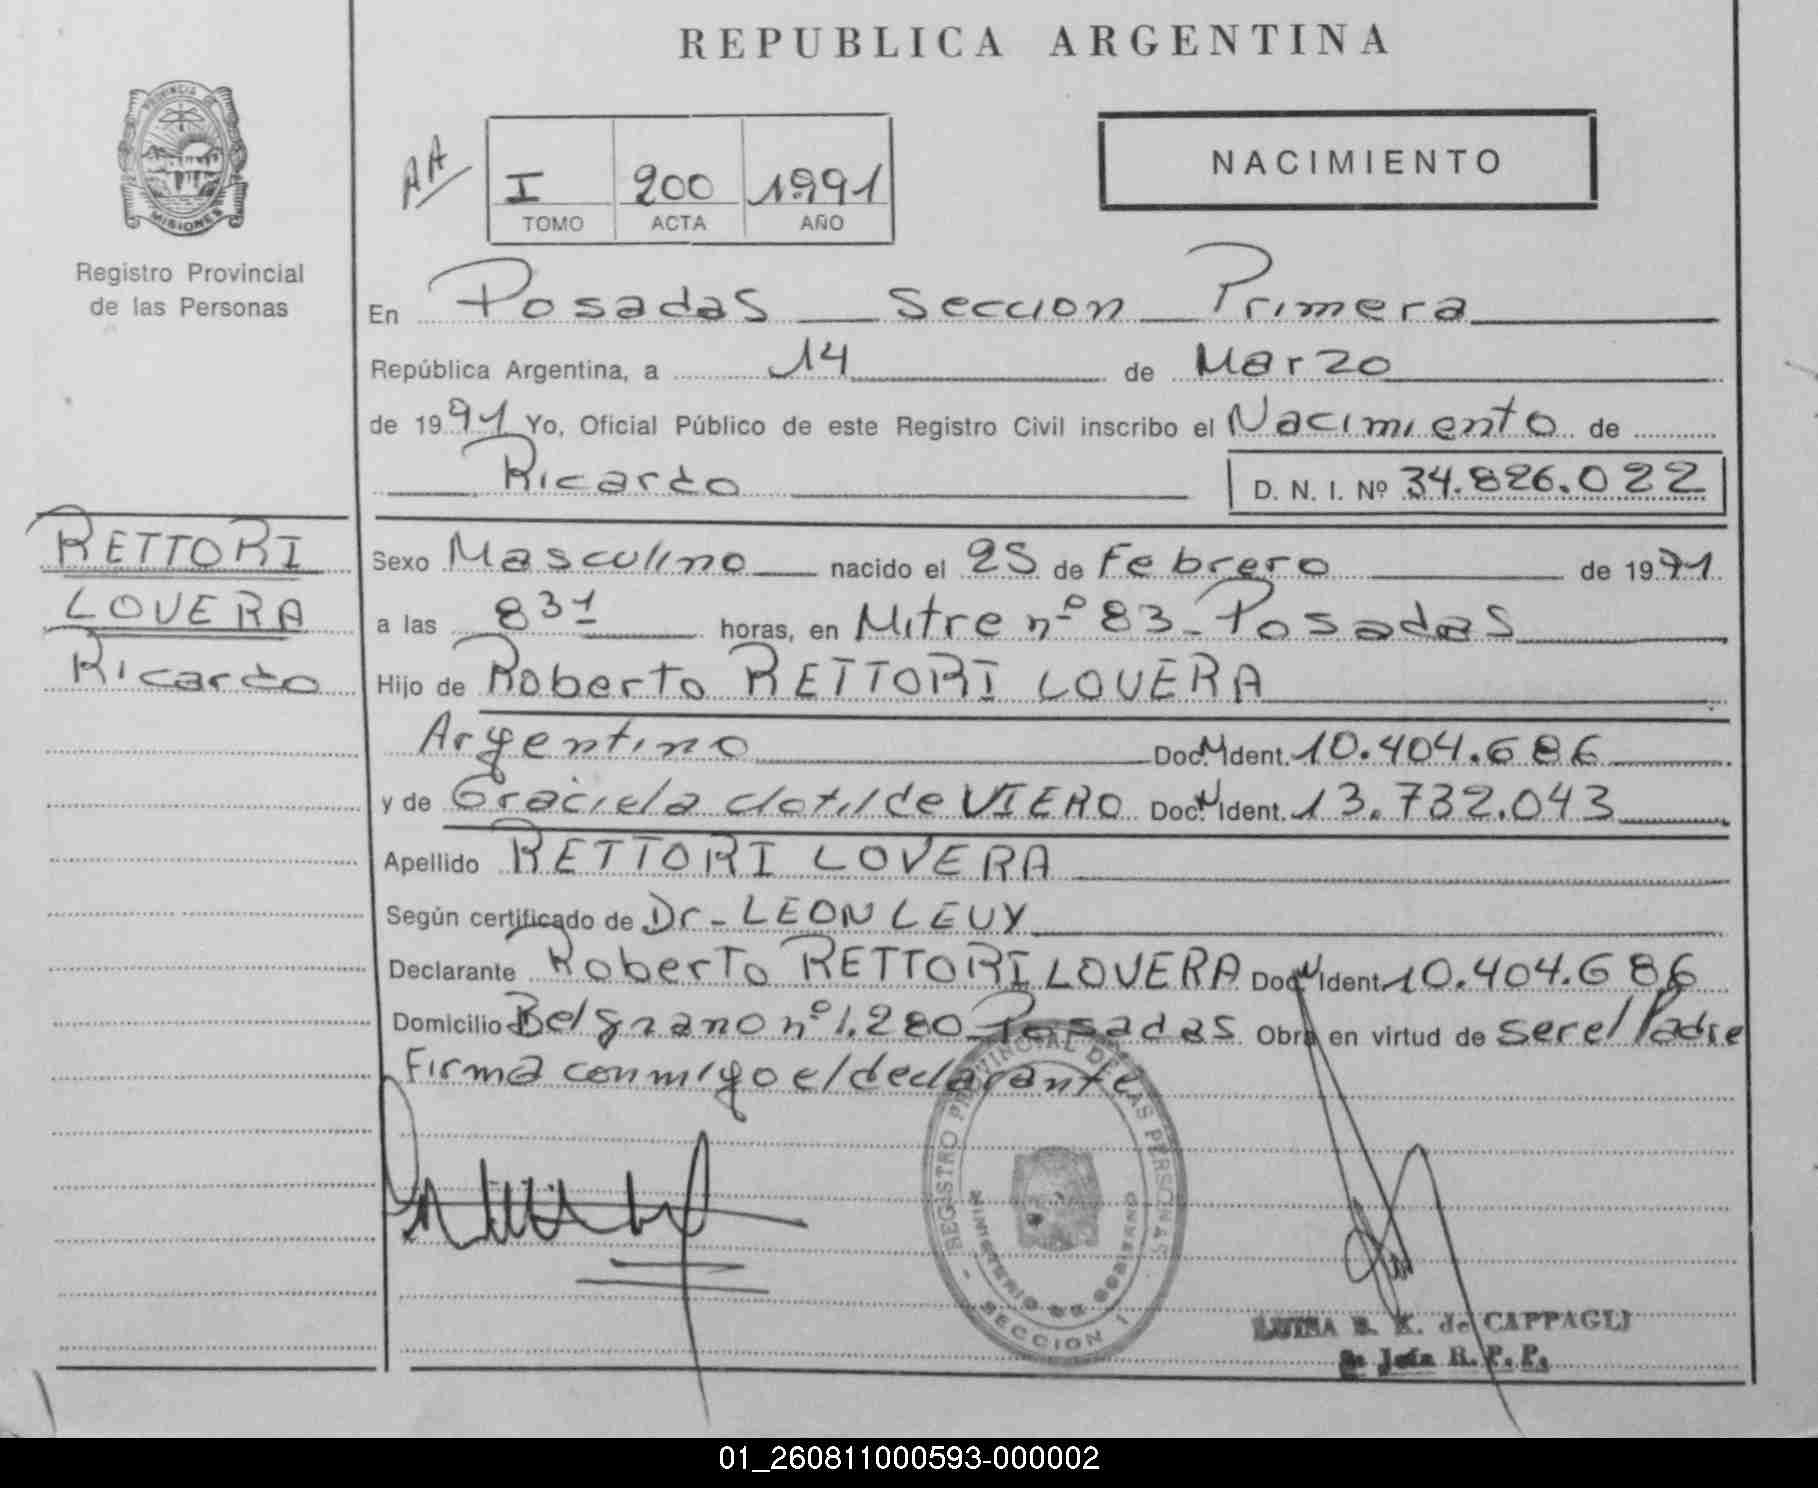 REPUBLICA ARGENTINA
PROVINCIA DE
MISIONES
Registro Provincial
de las Personas
AA
I 200 1991
TOMO ACTA AÑO
NACIMIENTO
En Posadas Seccion Primera
República Argentina, a 14 de Marzo
de 1991 Yo, Oficial Público de este Registro Civil inscribo el Nacimiento de
Ricardo D. N. I. Nº 34.826.022
RETTORI
LOVERA
Ricardo
Sexo Masculino nacido el 25 de Febrero de 1991
a las 8 31 horas, en Mitre nº 83 - Posadas
Hijo de Roberto RETTORI LOVERA
Argentino Doc. N Ident. 10.404.686
y de Graciela Clotilde VIERO Doc. N Ident. 13.732.043
Apellido RETTORI LOVERA
Según certificado de Dr - LEON LEVY
Declarante Roberto RETTORI LOVERA Doc. N Ident. 10.404.686
Domicilio Belgrano nº 1.280 Posadas Obra en virtud de ser el Padre
Firma conmigo el declarante
REGISTRO PROVINCIAL DE LAS PERSONAS
MINISTERIO DE GOBIERNO
SECCION 1
LUISA B. K. de CAPPAGLI
Jefa R. P. P.
01_260811000593-000002